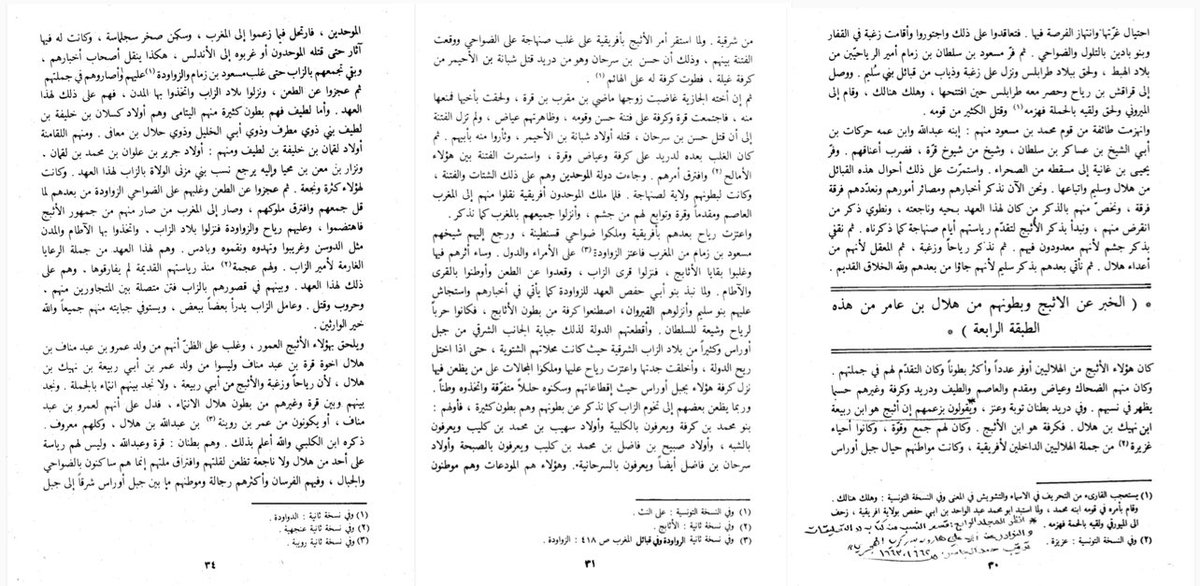 احتيال غرّتها وانتهاز الفرصة فيها . فتعاقدوا على ذلك واجتوروا وأقامت زغبة في القفار
وبنو يادين بالتلول والضواحي . ثم فرّ مسعود بن سلطان بن زمام أمير الرياحيّين من
بلاد الهبط ، ولحق ببلاد طرابلس ونزل على زغبة وذياب من قبائل بني سُليم . ووصل
إلى قراقش بن رياح وحصر معه طرابلس حين افتتحها ، وهلك هنالك ، وقام إلى
الميروني ولحق ولقيه بالحملة فهزمه (١) وقتل الكثير من قومه .
وانهزمت طائفة من قوم محمد بن مسعود منهم : إبنه عبدالله وابن عمه حركات بن
أبي الشيخ بن عساكر بن سلطان ، وشيخ من شيوخ قرّة ، فضرب أعناقهم . وفرّ
يحيى بن غانية إلى مسقطه من الصحراء . واستمرّت على ذلك أحوال هذه القبائل
من هلال وسليم واتباعها . ونحن الآن نذكر أخبارهم ومصائر أمورهم ونعدّدهم فرقة
فرقة ، ونخصّ منهم بالذكر من كان لهذا العهد بحيه وناجعته ، ونطوي ذكر من
انقرض منهم ، ونبدأ بذكر الأثبج لتقدّم رياستهم أيام صنهاجة كما ذكرناه . ثم نقفي
بذكر جشم لأنهم معدودون فيهم . ثم نذكر رياحاً وزغبة ، ثم المعقل لأنهم من
أعداء هلال . ثم نأتي بعدهم بذكر سليم لأنهم جاؤا من بعدهم ولله الخلاق القديم .
* ( الخبر عن الاثبج وبطونهم من هلال بن عامر من هذه
الطبقة الرابعة ) *
كان هؤلاء الأثبج من الهلاليين أوفر عدداً وأكثر بطوناً وكان التقدّم لهم في جملتهم .
وكان منهم الضحاك وعياض ومقدم والعاصم والطيف ودريد وكرفة وغيرهم حسبما
يظهر في نسبهم . وفي دريد بطنان توبة وعنز ، ويقولون بزعمهم إن أثبج هو ابن ربيعة
ابن نهيك بن هلال . فكرفة هو ابن الأثبج . وكان لهم جمع وقوّة ، وكانوا أحياء
غزيرة (٢) من جملة الهلاليين الداخلين لأفريقية ، وكانت مواطنهم حيال جبل أوراس
(١) يستعجب القارىء من التحريف في الاسماء والتشويش في المعنى وفي النسخة التونسية : وهلك هنالك .
وقام بأمره في قومه ابنه محمد ، ولما استبد ابو محمد عبد الواحد بن ابي حفص بولاية افريقية ، زحف
الى الميورقي ولقيه بالحمة فهزمه .
(٢) وفي النسخة التونسية : عزيزة .
* انظر المجلد الرابع : قسم النسب من كتاب « التعليقات
والنوادر عند أبي علي هارون بن زكريا الهجري »
ترتيب حمد الجاسر ص ١٦٦٢، ١٦٦٣
٣٠
من شرقية . ولما استقر أمر الأثبج بأفريقية على غلب صنهاجة على الضواحي ووقعت
الفتنة بينهم ، وذلك أن حسن بن سرحان وهو من دريد قتل شبانة بن الأحيمر من
كرفة غيلة ، فطوت كرفة له على الهائم (١) .
ثم إن أخته الجازية غاضبت زوجها ماضي بن مقرب بن قرة ، ولحقت بأخيها فمنعها
منه ، فاجتمعت قرة وكرفة على فتنة حسن وقومه ، وظاهرتهم عياض ، ولم تزل الفتنة
إلى أن قتل حسن بن سرحان ، قتله أولاد شبانة بن الأحيمر ، وثأروا منه بأبيهم . ثم
كان الغلب بعده لدريد على كرفة وعياض وقرة ، واستمرت الفتنة بين هؤلاء
الأمالح (٢) وافترق أمرهم . وجاءت دولة الموحدين وهم على ذلك الشتات والفتنة ،
وكانت لبطونهم ولاية لصنهاجة . فلما ملك الموحدون أفريقية نقلوا منهم إلى المغرب
العاصم ومقدماً وقرة وتوابع لهم من جشم ، وأنزلوا جميعهم بالمغرب كما نذكر .
واعتزت رياح بعدهم بأفريقية وملكوا ضواحي قسنطينة ، ورجع إليهم شيخهم
مسعود بن زمام من المغرب فاعتز الزواودة (٣) على الأمراء والدول . وساء أثرهم فيها
وغلبوا بقايا الأثابج ، فنزلوا قرى الزاب ، وقعدوا عن الظعن وأوطنوا بالقرى
والآطام . ولما نبذ بنو أبي حفص العهد للزواودة كما يأتي في أخبارهم واستجاش
عليهم بنو سليم وأنزلوهم القيروان، اصطنعوا كرفة من بطون الأثابج ، فكانوا حرباً
لرياح وشيعة للسلطان . وأقطعتهم الدولة لذلك جباية الجانب الشرقي من جبل
أوراس وكثيراً من بلاد الزاب الشرقية حيث كانت محلاتهم الشتوية ، حتى اذا اختل
ريح الدولة ، وأخلقت جدتها واعتزت رياح عليها وملكوا المجالات على من يظعن فيها
نزل كرفة هؤلاء بجبل أوراس حيث إقطاعاتهم وسكنوه حللاً متفرّقة واتخذوه وطناً .
وربما يظعن بعضهم إلى تخوم الزاب كما نذكر عن بطونهم وهم بطون كثيرة ، فأولهم :
بنو محمد بن كرفة ويعرفون بالكلبية وأولاد سهيب بن محمد بن كليب ويعرفون
بالشبه ، وأولاد صبيح بن فاضل بن محمد بن كليب ويعرفون بالصبحة وأولاد
سرحان بن فاضل أيضاً ويعرفون بالسرحانية. وهؤلاء هم المودعات وهم موطنون
(١) وفي النسخة التونسية : على النث .
(٢) وفي نسخة ثانية : الأثابج .
(٣) وفي نسخة ثانية الرواودة وفي قبائل المغرب ص ٤١٨ : الزواودة .
٣١
الموحدين ، فارتحل فيما زعموا إلى المغرب ، وسكن صخر سجلماسة ، وكانت له فيها
آثار حتى قتله الموحدون أو غربوه إلى الأندلس ، هكذا ينقل أصحاب أخبارهم ،
وبقي تجمعهم بالزاب حتى غلب مسعود بن زمام والزواودة (١) عليهم وأصاروهم في جملتهم
ثم عجزوا عن الظعن ، ونزلوا بلاد الزاب واتخذوا بها المدن ، فهم على ذلك لهذا
العهد . وأما لطيف فهم بطون كثيرة منهم اليتامى وهم أولاد كسلان بن خليفة بن
لطيف بني ذوي مطرف وذوي أبي الخليل وذوي حلال بن معافى . ومنهم اللقامنة
أولاد لقمان بن خليفة بن لطيف ومنهم : أولاد جرير بن علوان بن محمد بن لقمان .
ونزار بن معن بن محيا وإليه يرجع نسب بني مزني الولاة بالزاب لهذا العهد . وكانت
لهؤلاء كثرة ونجعة . ثم عجزوا عن الظعن وغلبهم على الضواحي الزواودة من بعدهم لما
قل جمعهم وافترق ملوكهم ، وصار إلى المغرب من صار منهم من جمهور الأثبج
فاهتضموا ، وعليهم رياح والزواودة فنزلوا بلاد الزاب . واتخذوا بها الآطام والمدن
مثل الدوسن وغريبوا وتهدوه ونقموه وبادس . وهم لهذا العهد من جملة الرعايا
الغارمة لأمير الزاب . ولهم عجمة (٢) منذ رياستهم القديمة لم يفارقوها ، وهم على
ذلك لهذا العهد . وبينهم في قصورهم بالزاب فتن متصلة بين المتجاورين منهم .
وحروب وقتل . وعامل الزاب يدرأ بعضاً ببعض ، ويستوفي جبايته منهم جميعاً والله
خير الوارثين .
ويلحق بهؤلاء الأثبج العمور ، وغلب على الظنّ أنهم من ولد عمرو بن عبد مناف بن
هلال اخوة قرة بن عبد مناف وليسوا من ولد عمر بن أبي ربيعة بن نهيك بن
هلال ، لأن رياحاً وزغبة والأثبج من أبي ربيعة ، ولا نجد بينهم انتماء بالجملة . ونجد
بينهم وبين قرة وغيرهم من بطون هلال الانتماء ، فدل على أنهم لعمرو بن عبد
مناف ، أو يكونون من عمر بن روينة (٣) بن عبدالله بن هلال ، وكلهم معروف .
ذكره ابن الكلبي والله أعلم بذلك . وهم بطنان : قرة وعبدالله ، وليس لهم رياسة
على أحد من هلال ولا ناجعة تظعن لقلتهم وافتراق ملتهم إنما هم ساكنون بالضواحي
والجبال ، وفيهم الفرسان وأكثرهم رجالة وموطنهم ما بين جبل أوراس شرقاً إلى جبل
(١) وفي نسخة ثانية : الدواودة .
(٢) وفي نسخة ثانية عنجهية .
(٣) وفي نسخة ثانية : رويبة .
٣٤